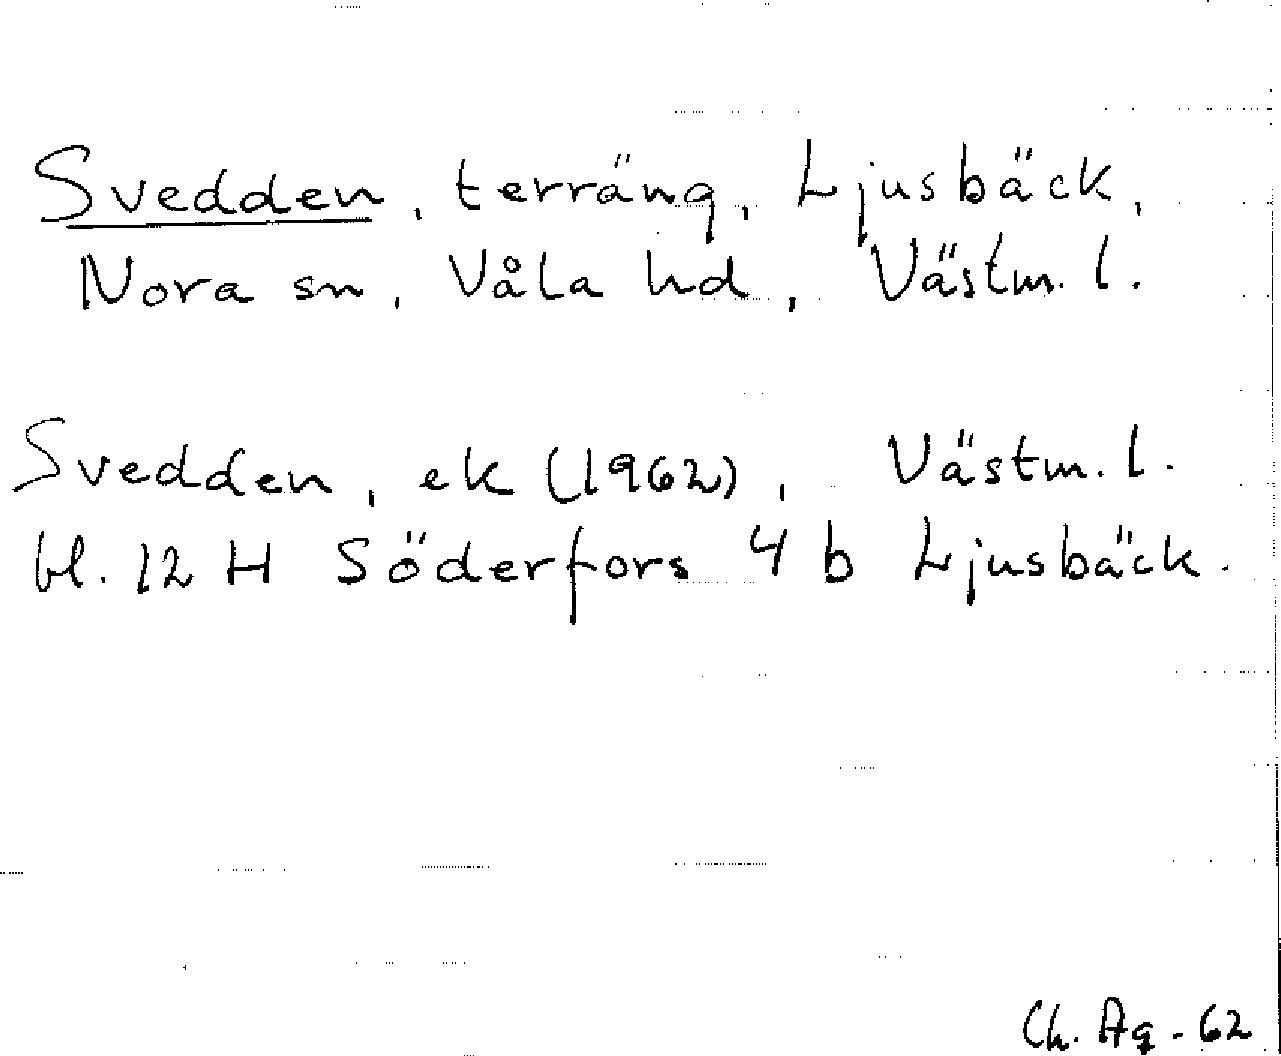 Svedden, terräng, Ljusbäck,
Nora sn, Våla hd, Västm. l.
Svedden, ek (1962), Västm. l.
bl. 12 H Söderfors 4 b Ljusbäck.
Ch. Ag. -62